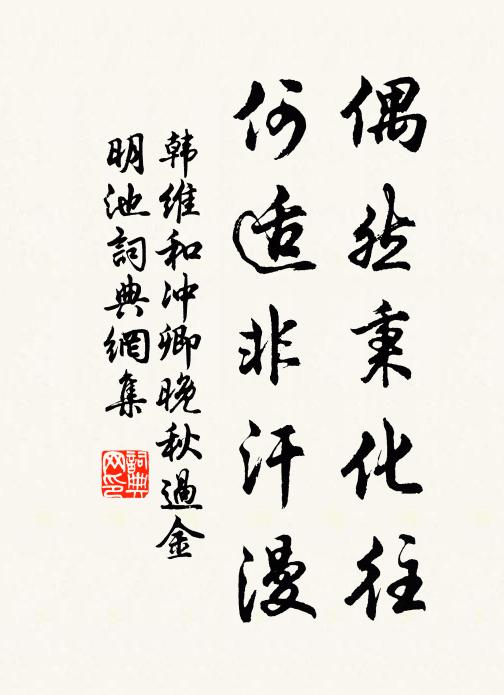 偶然乘化往
何适非汗漫
韩维和冲卿晚秋過金
明池詞典網集
詞典
网印